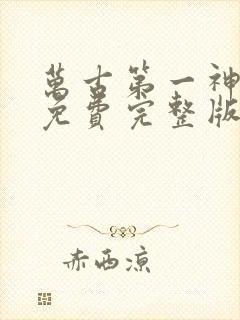 萬古第一神
免費完整版
赤西涼